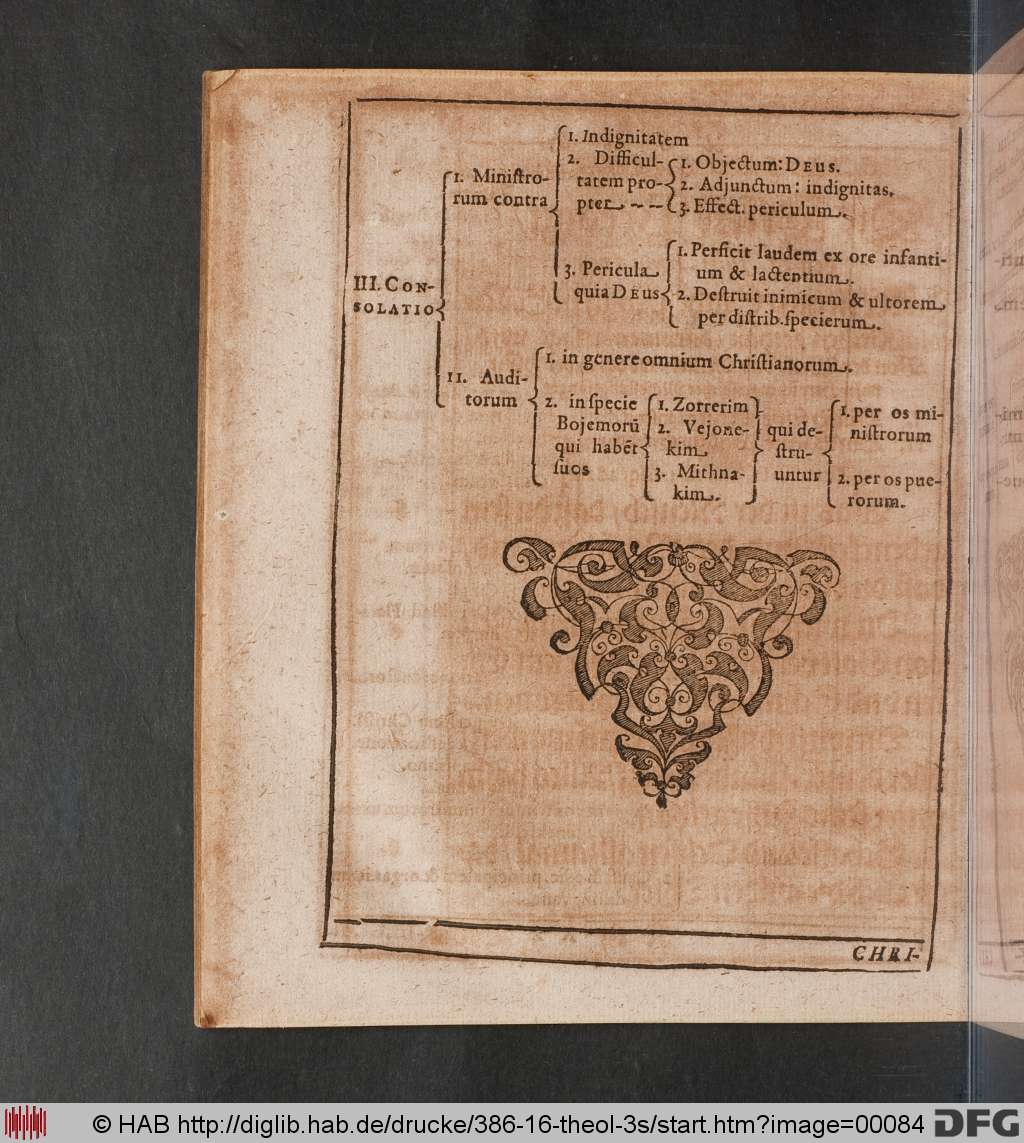 III. CON-
SOLATIO
1. Miniſtro-
rum contra
1. Indignitatem
2. Difficul-
tatem pro-
pter
1. Objectum: DEUS.
2. Adjunctum: indignitas.
3. Effect. periculum.
3. Pericula
quia DEUS
1. Perficit laudem ex ore infanti-
um & lactentium.
2. Deſtruit inimicum & ultorem
per diſtrib. ſpecierum.
II. Audi-
torum
1. in genere omnium Chriſtianorum.
2. in ſpecie
Bojemorũ
qui habẽt
ſuos
1. Zorrerim
2. Vejone-
kim
3. Mithna-
kim.
qui de-
ſtru-
untur
1. per os mi-
niſtrorum
2. per os pue-
rorum.
CHRI-
© HAB http://diglib.hab.de/drucke/386-16-theol-3s/start.htm?image=00084
DFG